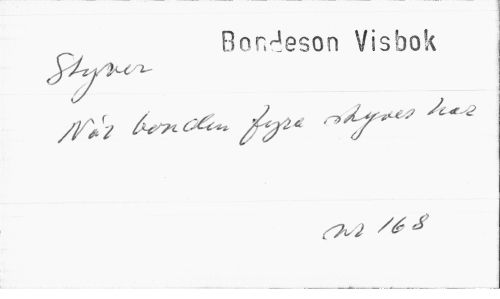 Bondeson Visbok
Styver
När bonden fyra styver har
nr 168